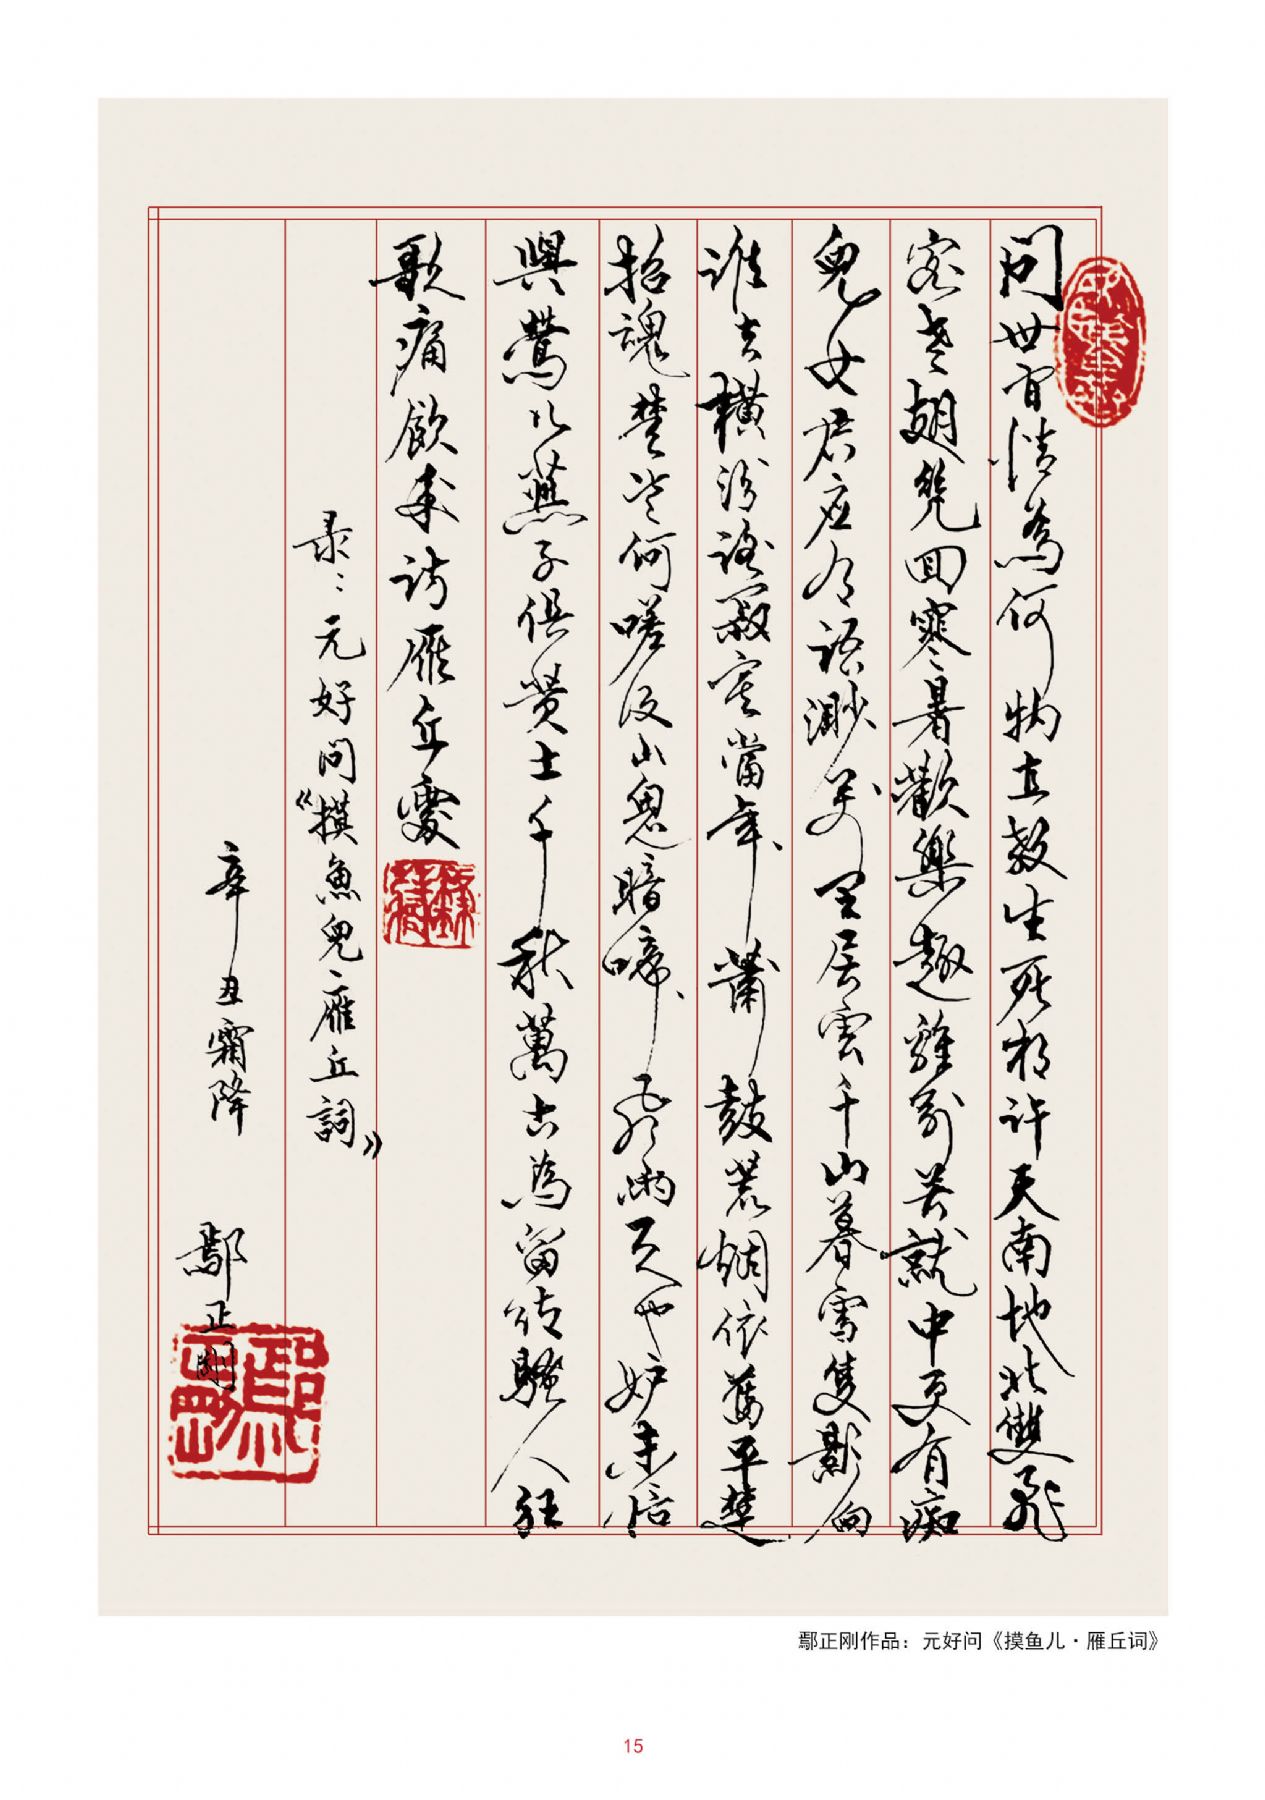 問世间情爲何物直教生死相許天南地北雙飛
客老翅幾回寒暑歡樂趣離别苦就中更有痴
兒女君应有语渺万里层雲千山暮雪隻影向
誰去横汾路寂寞當年簫鼓荒烟依舊平楚
招魂楚些何嗟及山鬼暗啼风雨天也妒未信
與鶯儿燕子俱黄土千秋萬古為留待騷人狂
歌痛飲来访雁丘處
录：元好问《摸魚兒雁丘詞》
辛丑霜降
鄢正刚
鄢正刚作品：元好问《摸鱼儿·雁丘词》
15